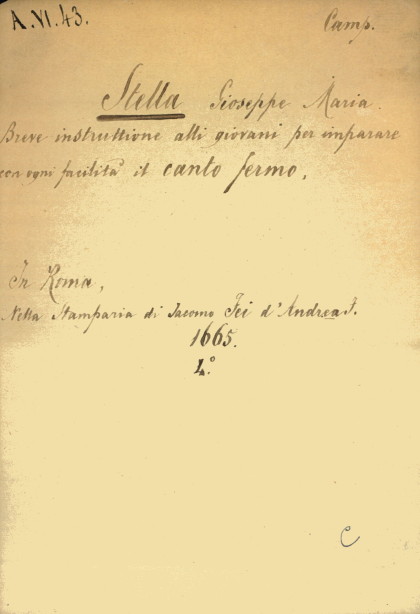 A.VI.43.
Camp.
Stella Gioseppe Maria.
Breve instruttione alli giovani per imparare
con ogni facilità il canto fermo.
In Roma,
Nella Stamparia di Jacomo Fei d'Andrea F.
1665.
4.°
C